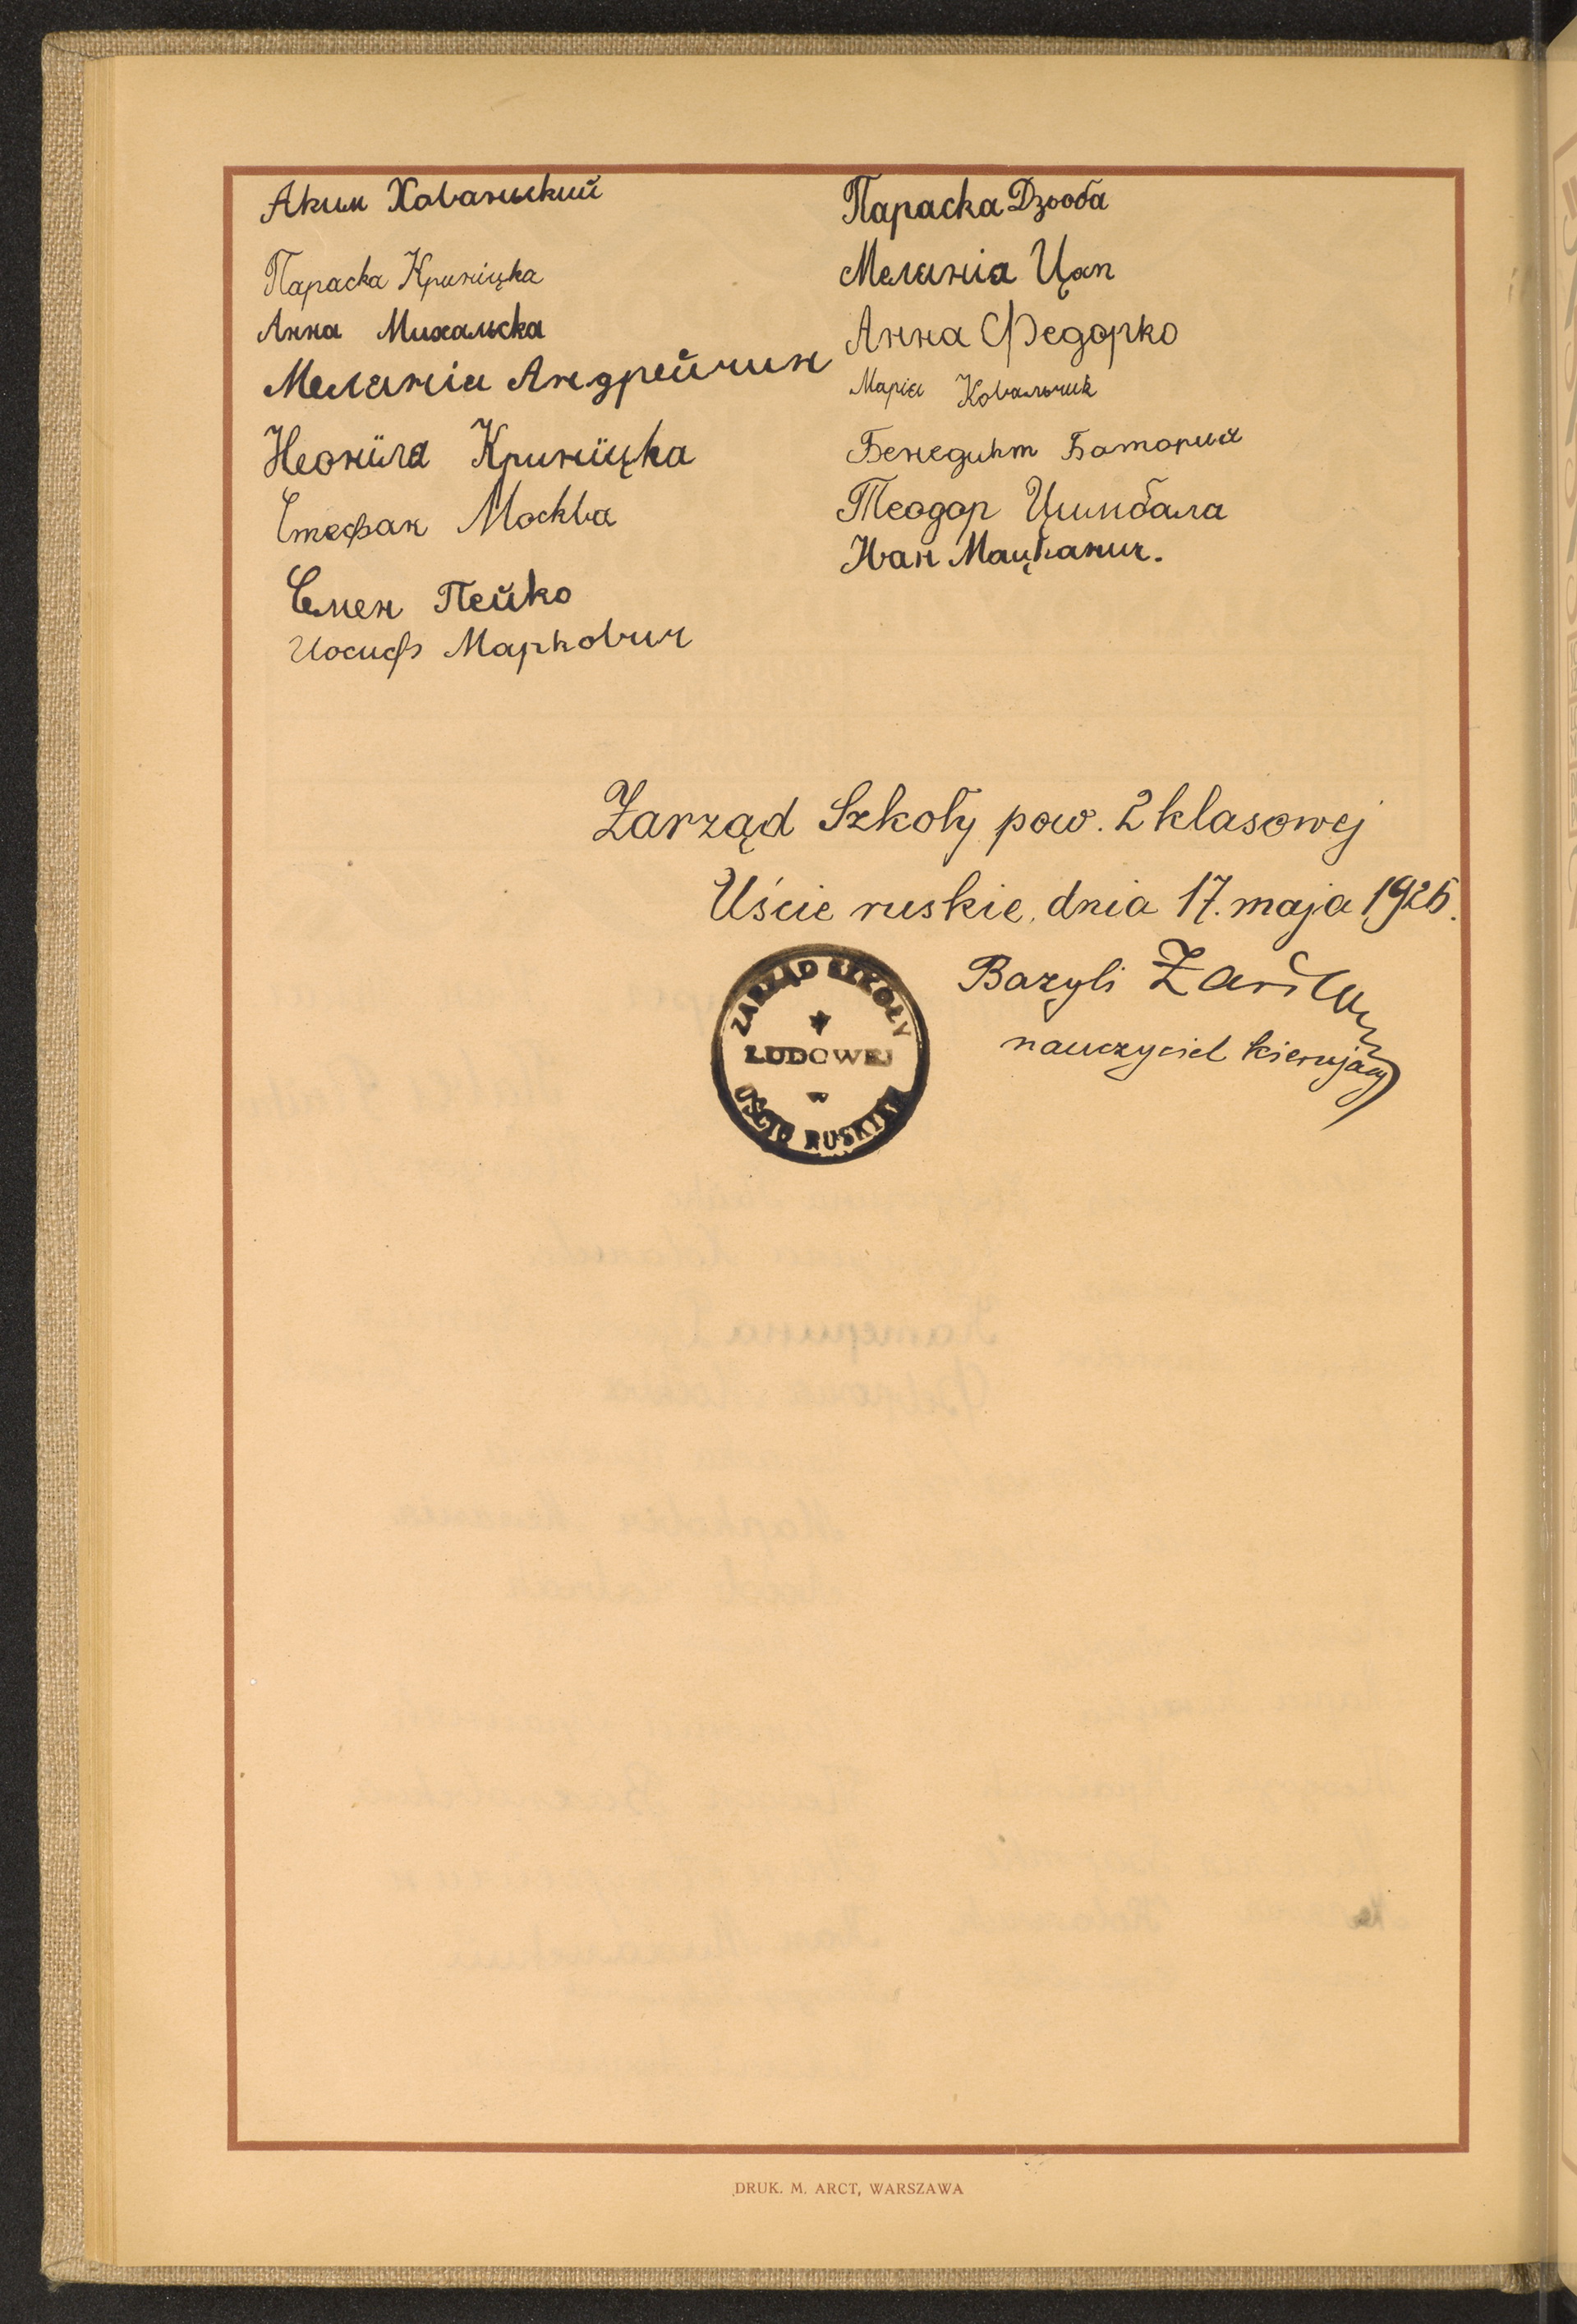 Аким Хованьский
Параска Криніцка
Анна Михальска
Меланіа Андрейчин
Неоніла Криніцка
Стефан Москва
Семен Пейко
Иосиф Маркович
Параска Дзюба
Меланіа Цап
Анна Федорко
Маріа Ковальчик
Бенедикт Баторий
Теодор Цимбала
Иван Мацканич.
Zarząd Szkoły pow. 2 klasowej
Uście ruskie, dnia 17. maja 1926.
Bazyli
nauczyciel kierujący
ZARZĄD SZKOŁY
LUDOWEJ
w
UŚCIU RUSKIEM
DRUK. M. ARCT, WARSZAWA